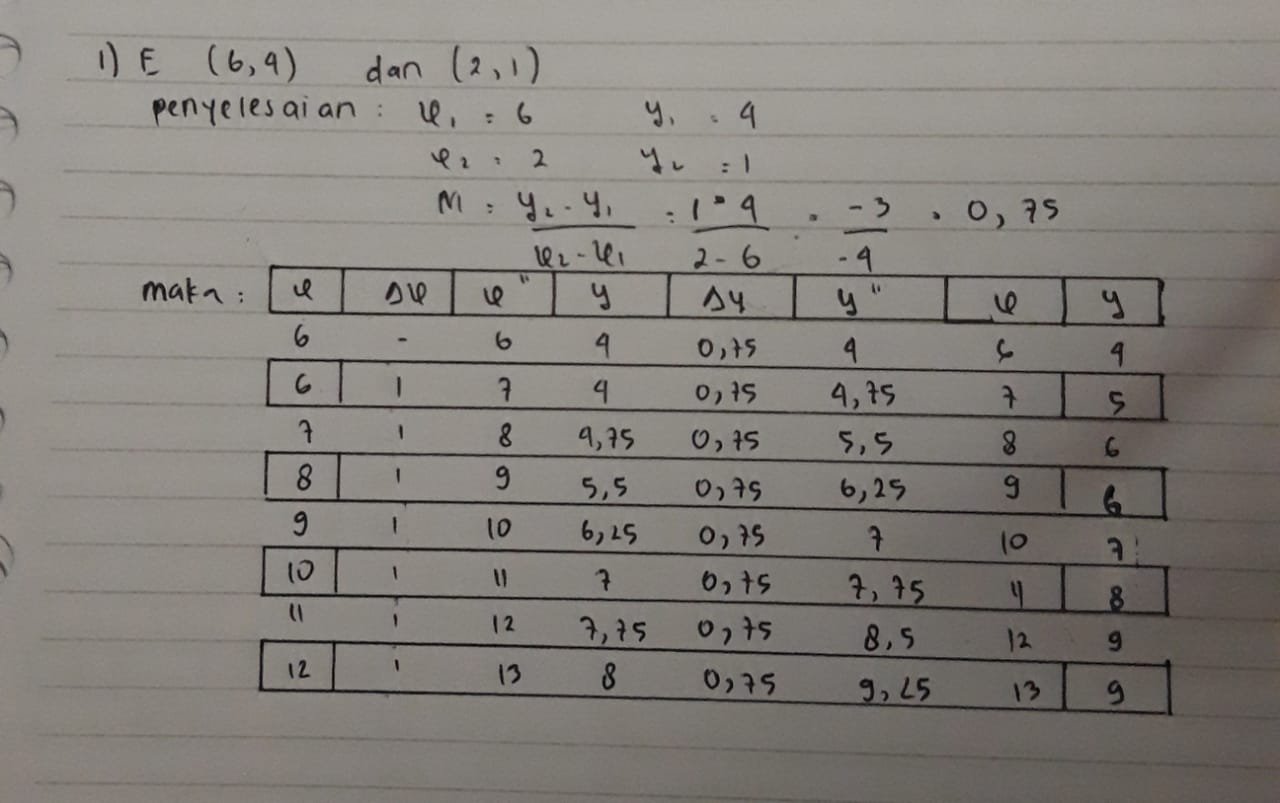 1) E (6,4) dan (2,1)
penyelesaian : x₁ = 6 y₁ = 4
x₂ = 2 y₂ = 1
M = y₂ - y₁ / x₂ - x₁ = 1 - 4 / 2 - 6 = -3 / -4 = 0,75
maka : x Δx x" y Δy y" x y
6 - 6 4 0,75 4 6 4
6 1 7 4 0,75 4,75 7 5
7 1 8 4,75 0,75 5,5 8 6
8 1 9 5,5 0,75 6,25 9 6
9 1 10 6,25 0,75 7 10 7
10 1 11 7 0,75 7,75 11 8
11 1 12 7,75 0,75 8,5 12 9
12 1 13 8 0,75 9,25 13 9